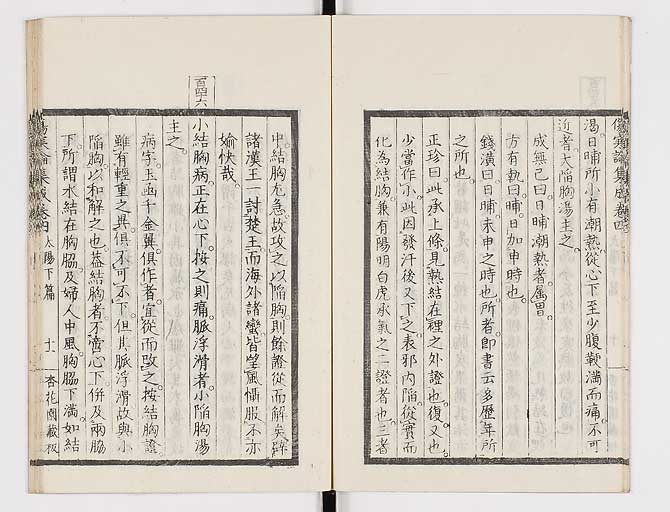 渴日晡所小有潮熱從心下至少腹鞕滿而痛不可
近者大陷胸湯主之
成無己曰日晡潮熱者屬胃
方有執曰晡日加申時也
錢潢曰日晡未申之時也所者卽書云多歷年所
之所也
正珍曰此承上條見熱結在裡之外證也復又也
少當作小此因發汗後又下之表邪內陷從實而
化為結胸兼有陽明白虎承氣之二證者也三者
中結胸尤急故攻之以陷胸則餘證從而解矣辟
諸漢王一討楚王而海外諸蠻皆望風懾服不亦
愉快哉
百四六
小結胸病正在心下按之則痛脈浮滑者小陷胸湯
主之
病字玉函千金翼俱作者宜從而改之按結胸證
雖有輕重之異俱不可不下但其脈浮滑故與小
陷胸以和解之也蓋結胸者不啻心下併及兩脇
下所謂水結在胸脇及婦人中風胸脇下滿如結
太陽下篇
十一
杏花園藏板